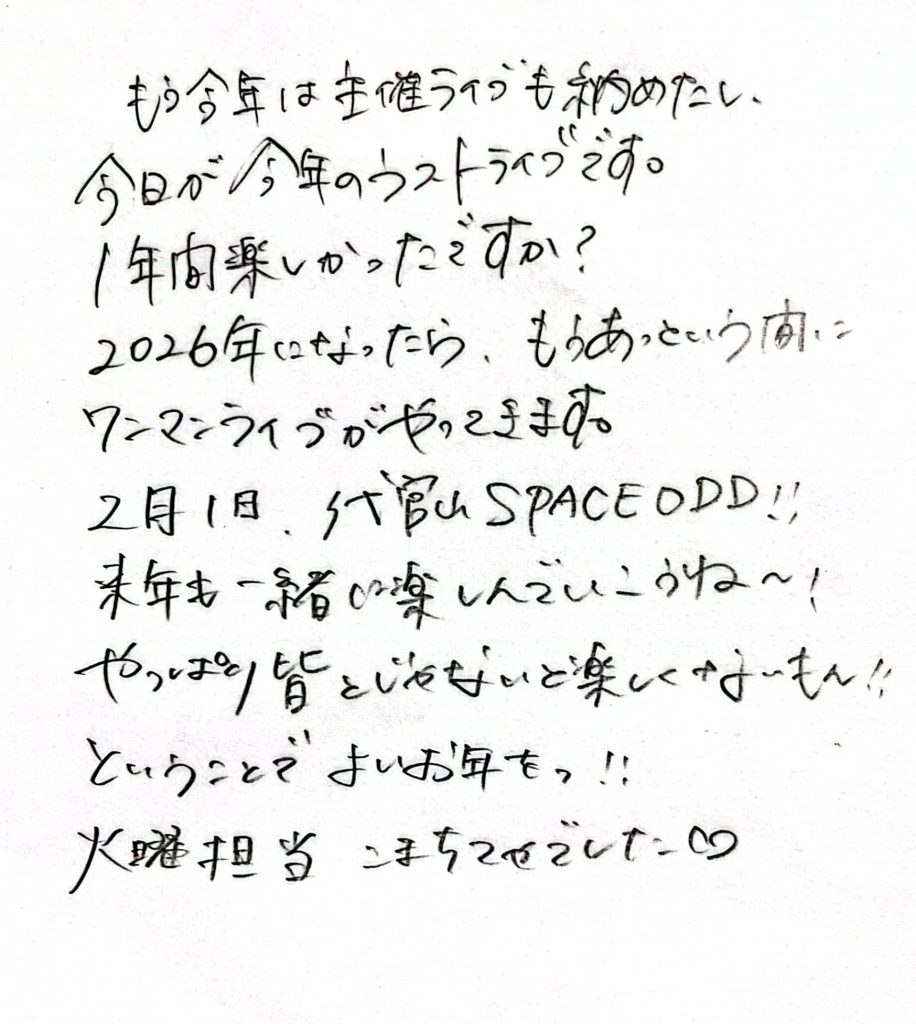 もう今年は主催ライブも納めたし、
今日が今年のラストライブです。
1年間楽しかったですか?
2026年になったら、もうあっという間に
ワンマンライブがやってきます。
2月1日、代官山SPACE ODD!!
来年も一緒に楽しんでいこうね〜!
やっぱり皆とじゃないと楽しくないもん!!
ということでよいお年をっ!!
火曜担当 こまちてせでした♡